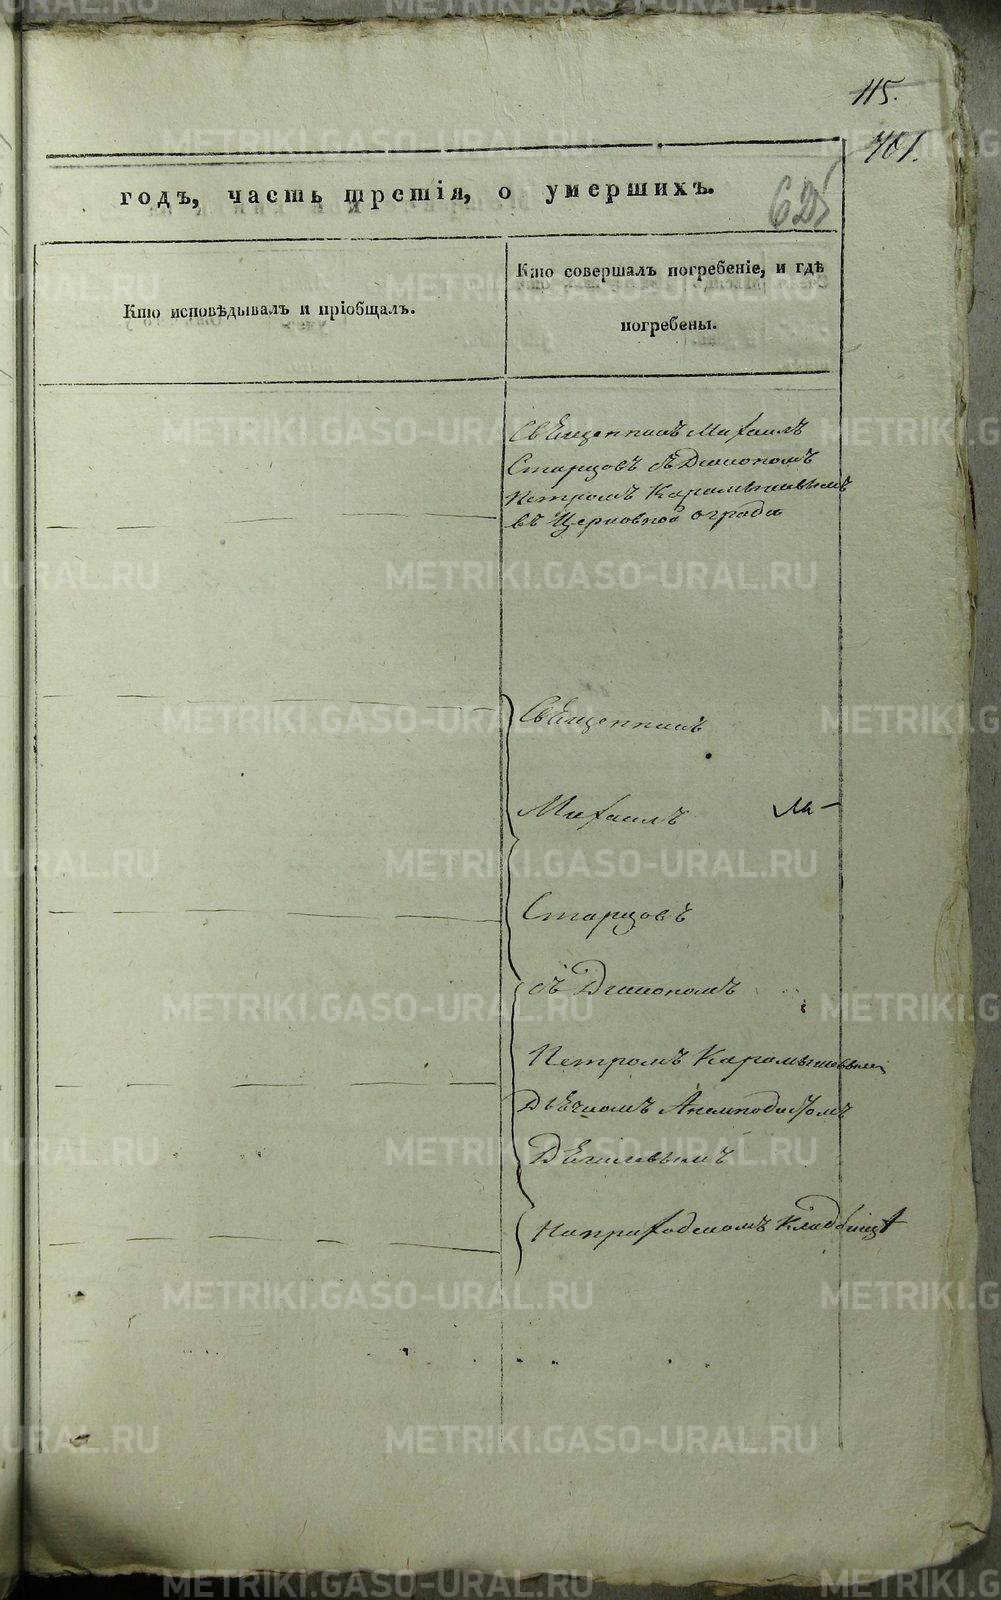 115.
401.
годъ, часть третія, о умершихъ.
625
Кто исповѣдывалъ и пріобщалъ.
Кто совершалъ погребеніе, и гдѣ
погребены.
Священникъ Михаилъ
Старцовъ съ Діакономъ
Петромъ Карамышевымъ
въ Церковной оградѣ
Священникъ
Михаилъ
Старцовъ
съ Діакономъ
Петромъ Карамышевым
Дьячкомъ Анемподистомъ
На приходскомъ кладбищѣ
METRIKI.GASO-URAL.RU